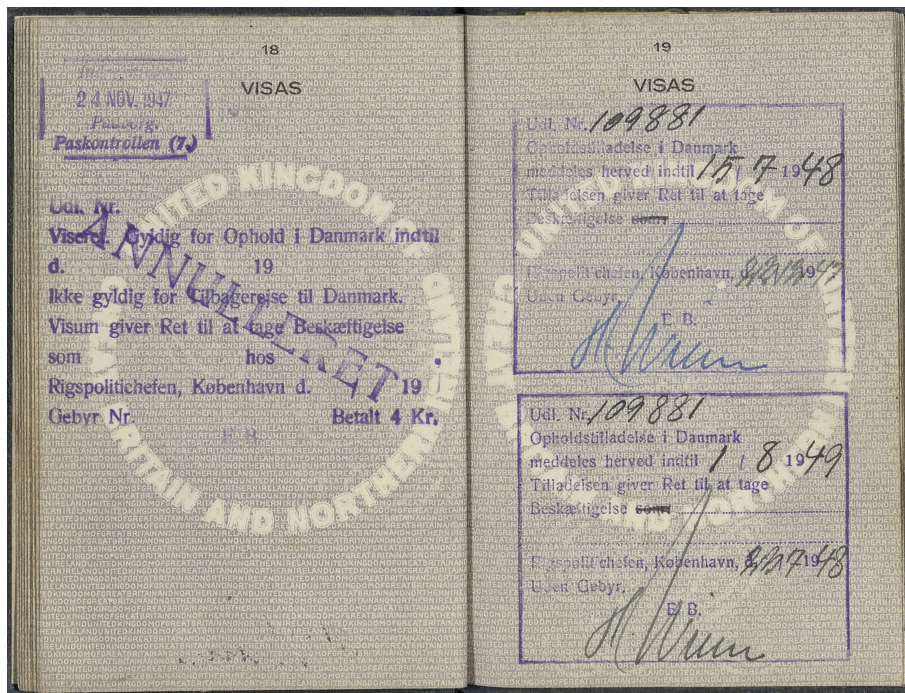 18
VISAS
24 NOV. 1947
Padborg.
Paskontrollen (7.)
UNITED KINGDOM OF GREAT BRITAIN AND NORTHERN IRELAND
Udl. Nr.
Viseret. Gyldig for Ophold i Danmark indtil
d. 19
Ikke gyldig for Tilbagerejse til Danmark.
Visum giver Ret til at tage Beskæftigelse
som hos .
Rigspolitichefen, København d. 19
Gebyr Nr. Betalt 4 Kr.
E. B.
ANNULLERET
19
VISAS
Udl. Nr. 109881
Opholdstilladelse i Danmark
meddeles herved indtil 15 / 7 1948
Tilladelsen giver Ret til at tage
Beskæftigelse som
Rigspolitichefen, København, d. 1947
Uden Gebyr.
E. B.
Udl. Nr. 109881
Opholdstilladelse i Danmark
meddeles herved indtil 1 / 8 1949
Tilladelsen giver Ret til at tage
Beskæftigelse som
Rigspolitichefen, København, 1948
Uden Gebyr.
E. B.